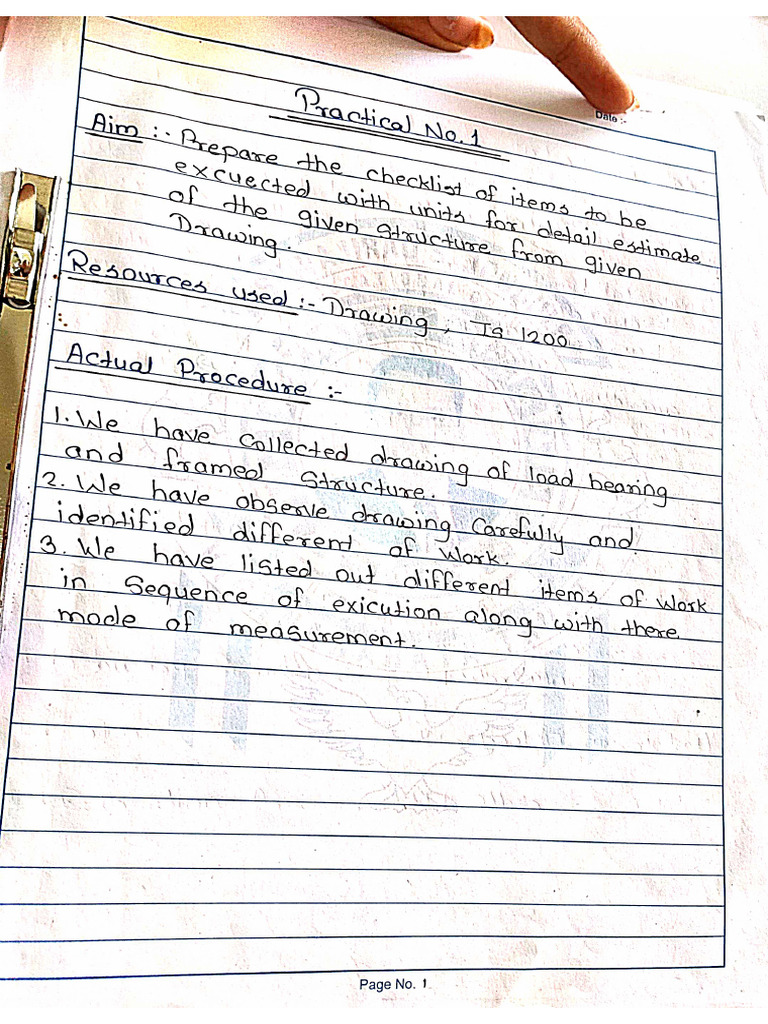 Date :-
Practical No. 1
Aim :- Prepare the checklist of items to be
excuected with units for detail estimate
of the given structure from given
Drawing.
Resources used :- Drawing, Is 1200
Actual Procedure :-
1. We have collected drawing of load bearing
and framed structure.
2. We have observe drawing carefully and
identified different of work.
3. We have listed out different items of work
in sequence of exicution along with there
mode of measurement.
Page No. 1